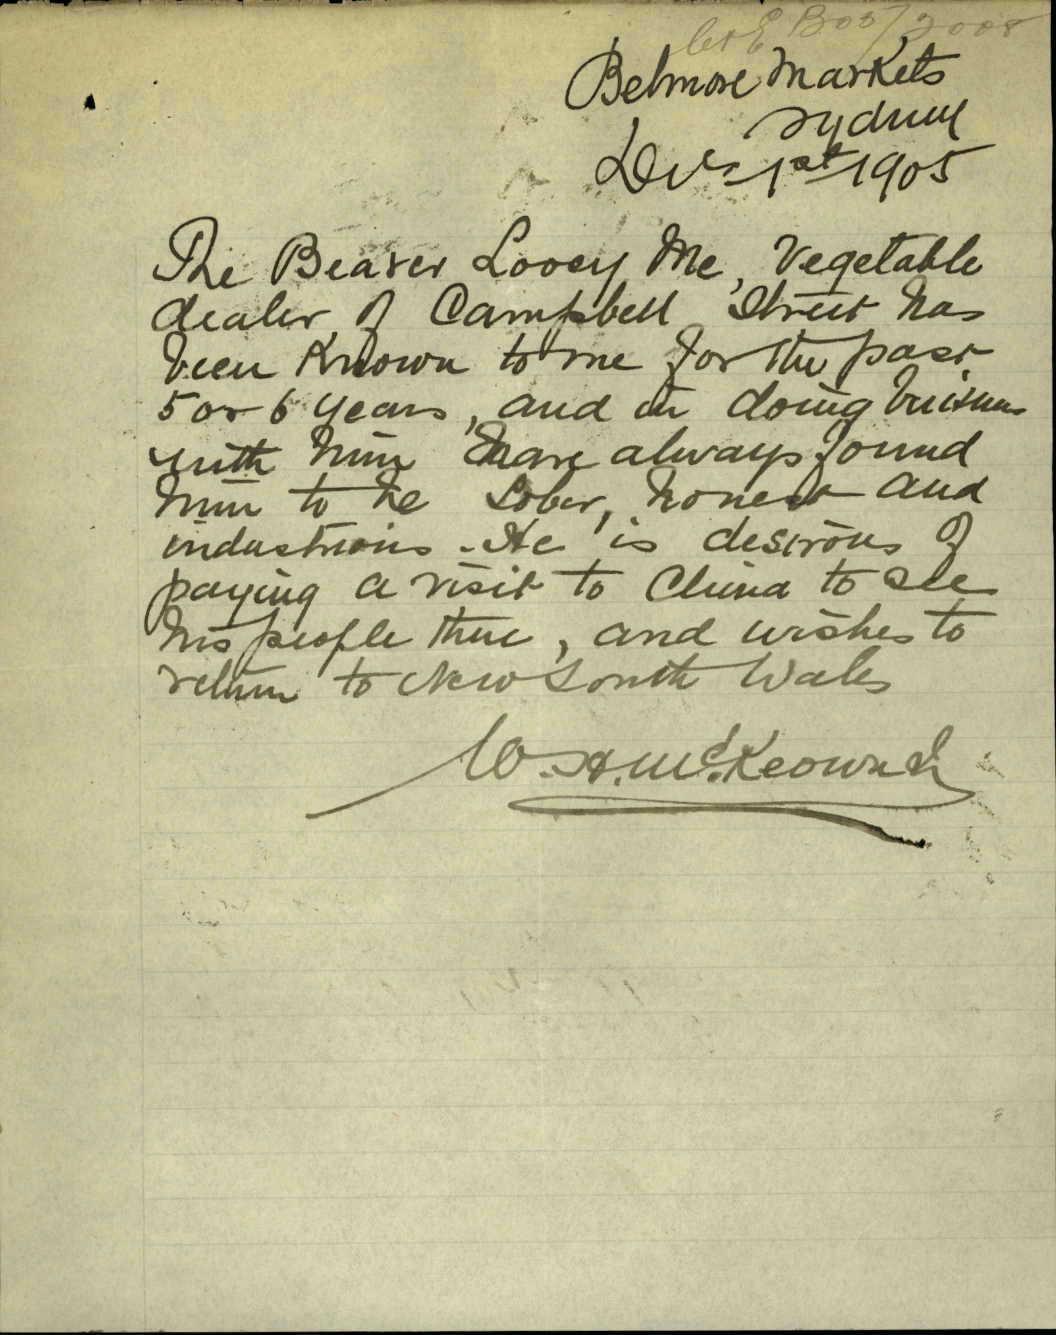 Belmore Markets
Sydney
Dec 1st 1905
The Bearer Looey Me, Vegetable
dealer of Campbell Street has
been Known to me for the past
5 or 6 years, and in doing business
with him have always found
him to be Sober, honest and
industrious. He is desirous of
paying a visit to China to see
his people there, and wishes to
return to New South Wales
W. H. McKeown